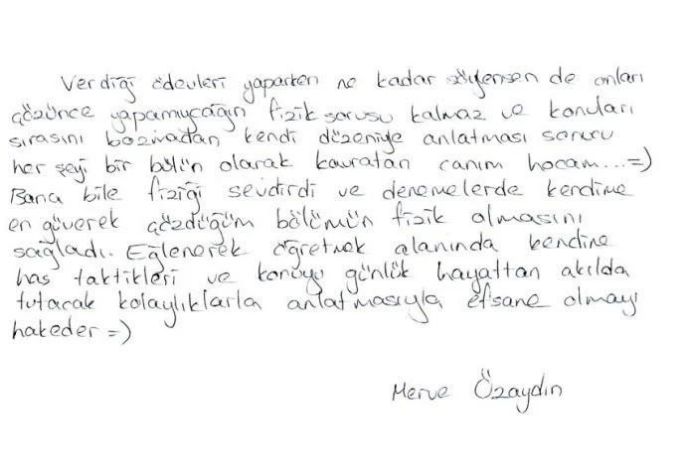 Verdiği ödevleri yaparken ne kadar söylensen de onları
çözünce yapamıycağın fizik sorusu kalmaz ve konuları
sırasını bozmadan kendi düzeniyle anlatması sonucu
her şeyi bir bütün olarak kavratan canım hocam...=)
Bana bile fiziği sevdirdi ve denemelerde kendime
en güverek çözdüğüm bölümün fizik olmasını
sağladı. Eğlenerek öğretmek alanında kendine
has taktikleri ve konuyu günlük hayattan akılda
tutacak kolaylıklarla anlatmasıyla efsane olmayı
hakeder =)
Merve Özaydın